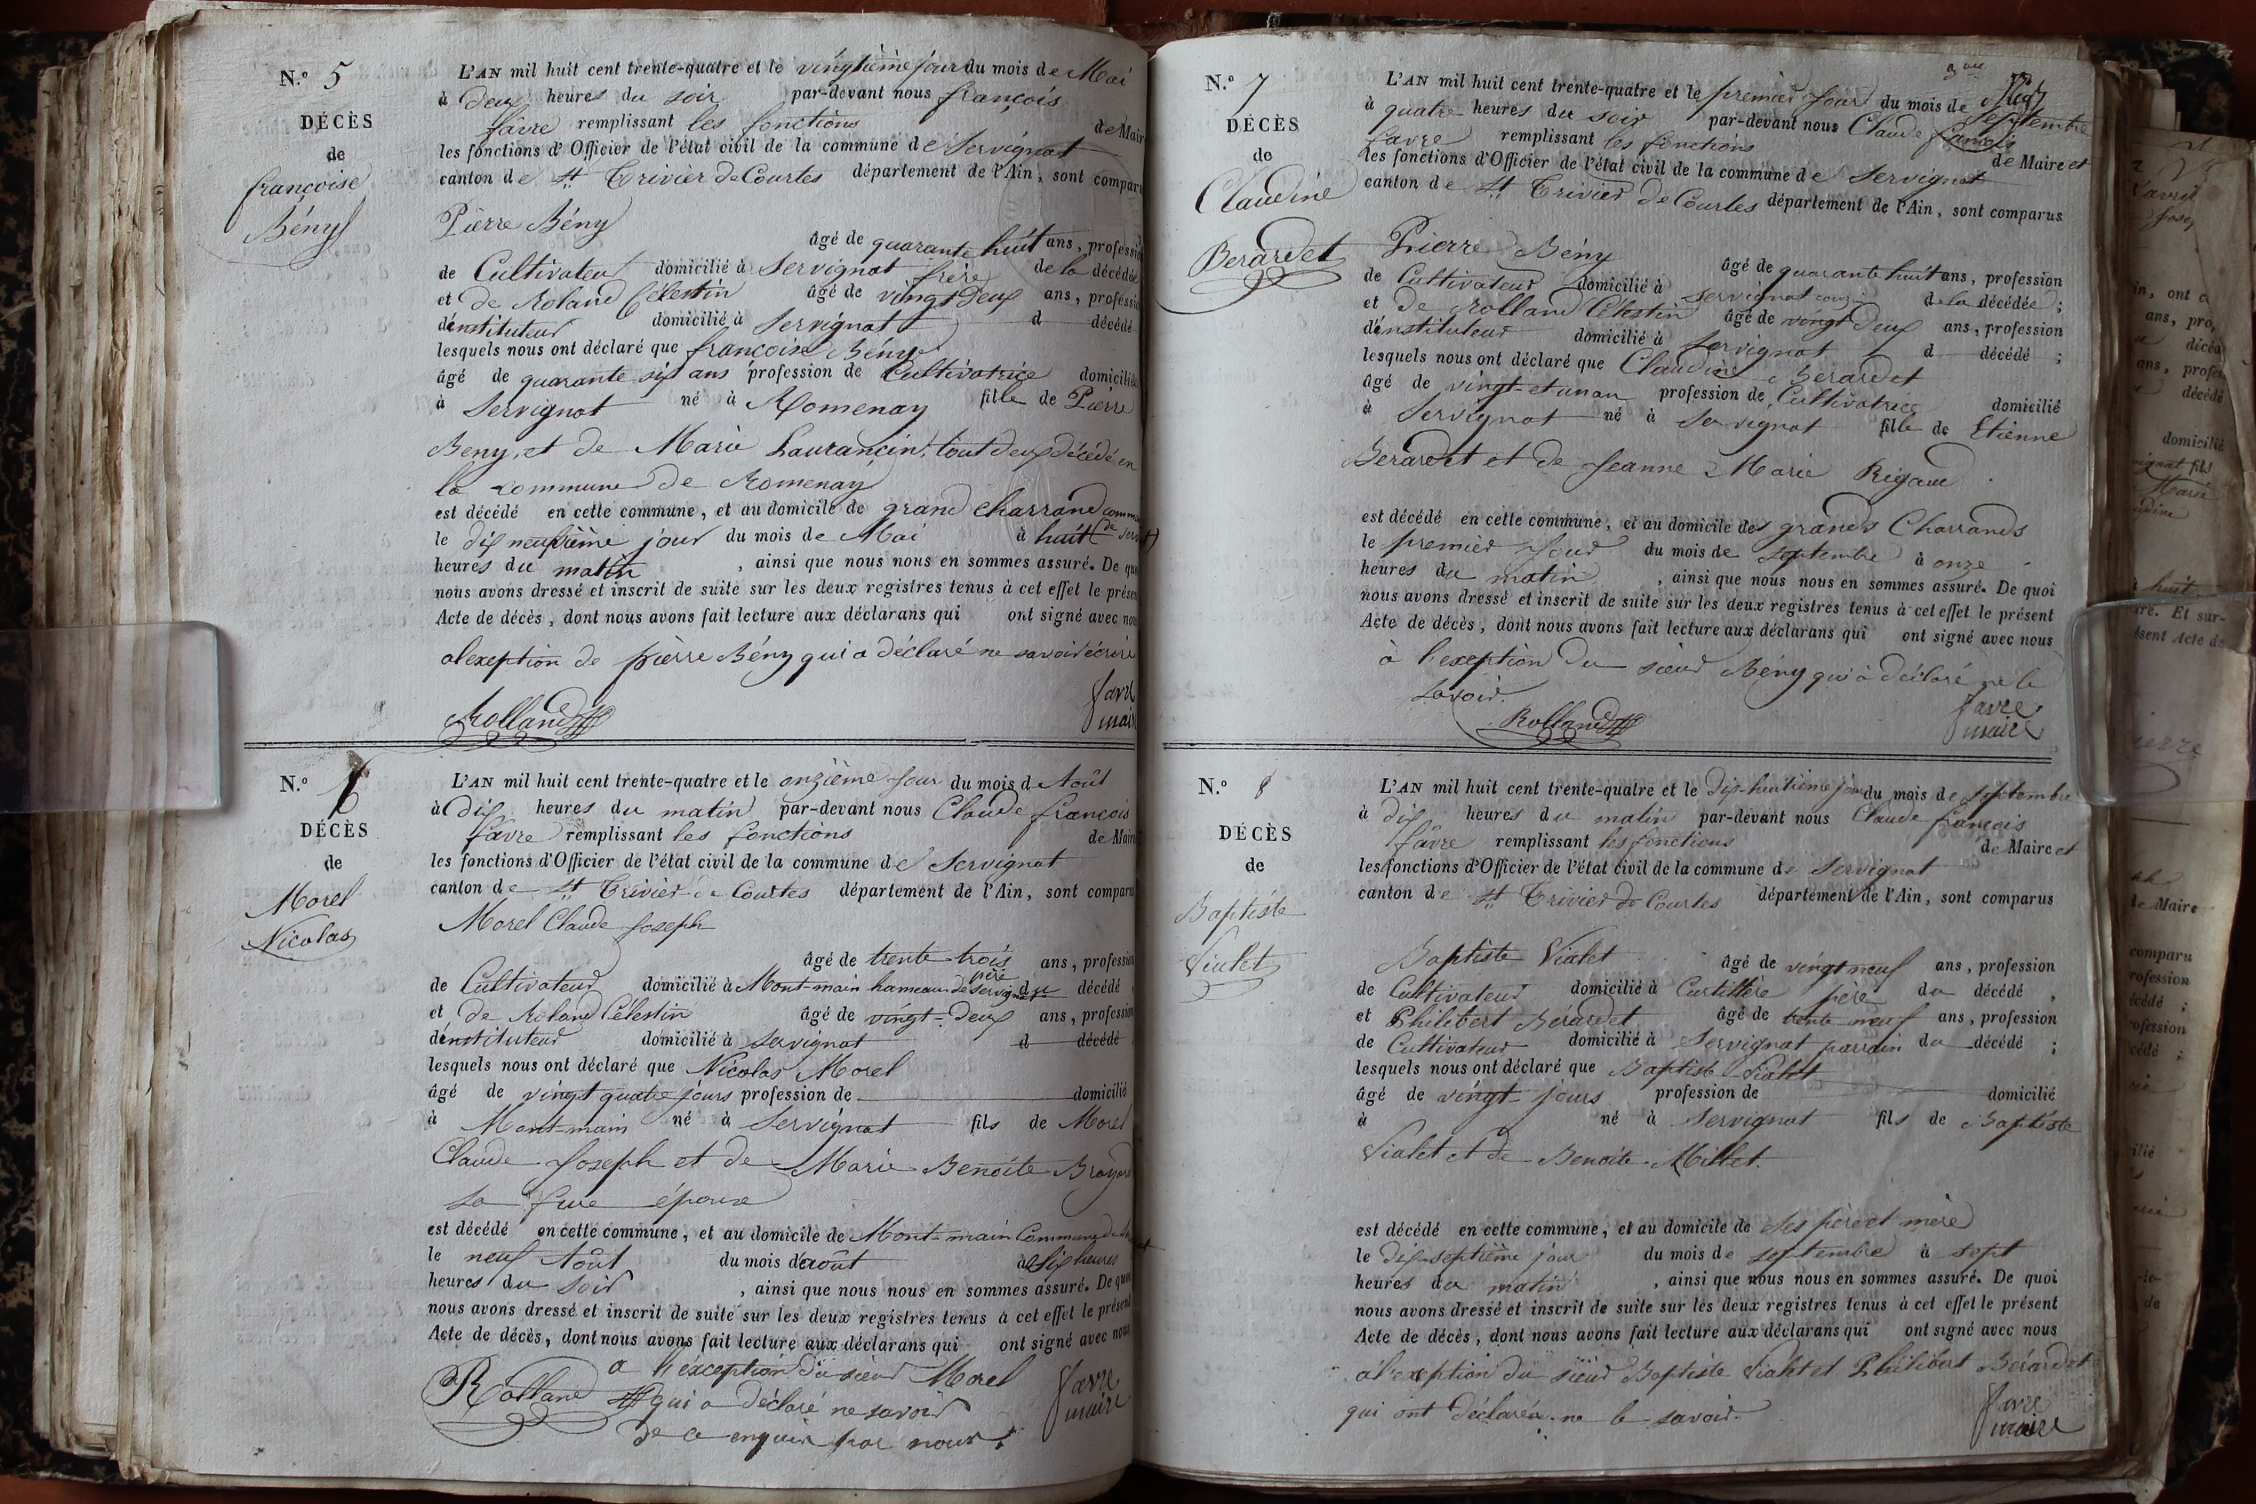 N.o 5
DÉCÈS
de
françoise
Bény
L'AN mil huit cent trente-quatre et le vingtième jour du mois de Mai
à deux heures du soir par-devant nous françois
favre remplissant les fonctions de Mair
les fonctions d'Officier de l'état civil de la commune de Servignat
canton de St Trivier de Courtes département de l'Ain, sont compar
Pierre Bény
âgé de quarante huit ans, professi
de Cultivateur domicilié à Servignat frère de la décédée
et de Roland Célestin âgé de vingt deux ans, professi
d'instituteur domicilié à Servignat d décédé
lesquels nous ont déclaré que françoise Bény
âgé de quarante six ans profession de Cultivatrice domicilié
à Servignat né à Romenay fille de Pierre
Beny, et de Marie Laurançin, tout deux décédé en
la commune de Romenay
est décédé en cette commune, et au domicile de grand charrand comm
le dix neuvième jour du mois de Mai à huit de
heures du matin, ainsi que nous nous en sommes assuré. De qu
nous avons dressé et inscrit de suite sur les deux registres tenus à cet effet le prése
Acte de décès, dont nous avons fait lecture aux déclarans qui ont signé avec nou
a l'exeption de pièrre Bény qui a déclaré ne savoir écrire
Rolland
favre
mair
N.o 6
DÉCÈS
de
Morel
Nicolas
L'AN mil huit cent trente-quatre et le onzième jour du mois d Août
à dix heures du matin par-devant nous Claude françois
favre remplissant les fonctions de Mair
les fonctions d'Officier de l'état civil de la commune de Servignat
canton de St Trivier de Courtes département de l'Ain, sont comparu
Morel Claude Joseph
âgé de trente trois ans, profession
père
de Cultivateur domicilié à Mont-main hameau de Servignat du décédé
et de Roland Célestin âgé de vingt-deux ans, profession
d'instituteur domicilié à Servignat d décédé
lesquels nous ont déclaré que Nicolas Morel
âgé de vingt quatre jours profession de domicilié
à Mont-main né à Servignat fils de Morel
Claude Joseph et de Marie Benoite Brayard
sa épouse
est décédé en cette commune, et au domicile de Mont-main Commune de
le neuf Août du mois d'août à six heures
heures du soir, ainsi que nous nous en sommes assuré. De quoi
nous avons dressé et inscrit de suite sur les deux registres tenus à cet effet le présent
Acte de décès, dont nous avons fait lecture aux déclarans qui ont signé avec nous
a l'éxception du sieur Morel
Rolland qui a déclaré ne savoir
de ce enquis par nous.
favre
maire
N.o 7
DÉCÈS
de
Claudine
Berardet
L'AN mil huit cent trente-quatre et le premier jour du mois de
Septembre
à quatre heures du soir par-devant nous Claude françois
favre remplissant les fonctions de Maire et
les fonctions d'Officier de l'état civil de la commune de Servignat
canton de St Trivier de Courtes département de l'Ain, sont comparus
Pierre Bény
âgé de quarante huit ans, profession
de Cultivateur domicilié à Servignat cousin de la décédée;
et de Rolland Célestin âgé de vingt deux ans, profession
d'instituteur domicilié à Servignat d décédé;
lesquels nous ont déclaré que Claudine Berardet
âgé de vingt-et un an profession de Cultivatrice domicilié
à Servignat né à Servignat fille de Etienne
Berardet et de Jeanne Marie Rigaud.
est décédé en cette commune, et au domicile des grands Charrands
le premier jour du mois de septembre à onze
heures du matin, ainsi que nous nous en sommes assuré. De quoi
nous avons dressé et inscrit de suite sur les deux registres tenus à cet effet le présent
Acte de décès, dont nous avons fait lecture aux déclarans qui ont signé avec nous
à l'exeption du sieur Bény qui à déclaré ne le
savoir.
Rolland
favre
maire
N.o 8
DÉCÈS
de
Baptiste
Vialet
L'AN mil huit cent trente-quatre et le dix-huitième jour du mois de Septembre
à dix heures du matin par-devant nous Claude françois
favre remplissant les fonctions de Maire et
les fonctions d'Officier de l'état civil de la commune de Servignat
canton de St Trivier de Courtes département de l'Ain, sont comparus
Baptiste Vialet âgé de vingt neuf ans, profession
de Cultivateur domicilié à Curtillère père du décédé,
et Philibert Bérardet âgé de trente neuf ans, profession
de Cultivateur domicilié à Servignat parrain du décédé;
lesquels nous ont déclaré que Baptiste Vialet
âgé de vingt jours profession de domicilié
à né à Servignat fils de Baptiste
Vialet et de Benoite Millet.
est décédé en cette commune, et au domicile de ses père et mère
le dix-septième jour du mois de septembre à sept
heures du matin, ainsi que nous nous en sommes assuré. De quoi
nous avons dressé et inscrit de suite sur les deux registres tenus à cet effet le présent
Acte de décès, dont nous avons fait lecture aux déclarans qui ont signé avec nous
à l'exeption du sieur Baptiste Vialet et Philibert Bérardet
qui ont déclaré ne le savoir.
favre
maire